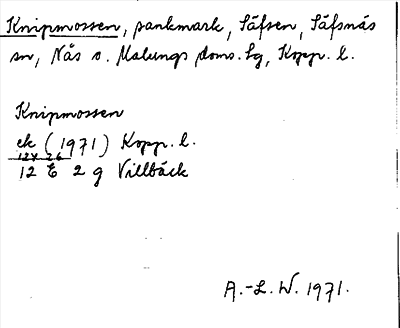 Knipmossen, sankmark, Säfsen, Säfsnäs
sn, Nås o. Malungs doms. lg, Kopp. l.
Knipmossen
ek (1971) Kopp. l.
12 E 2 g Villbäck
A.-L. W. 1971.